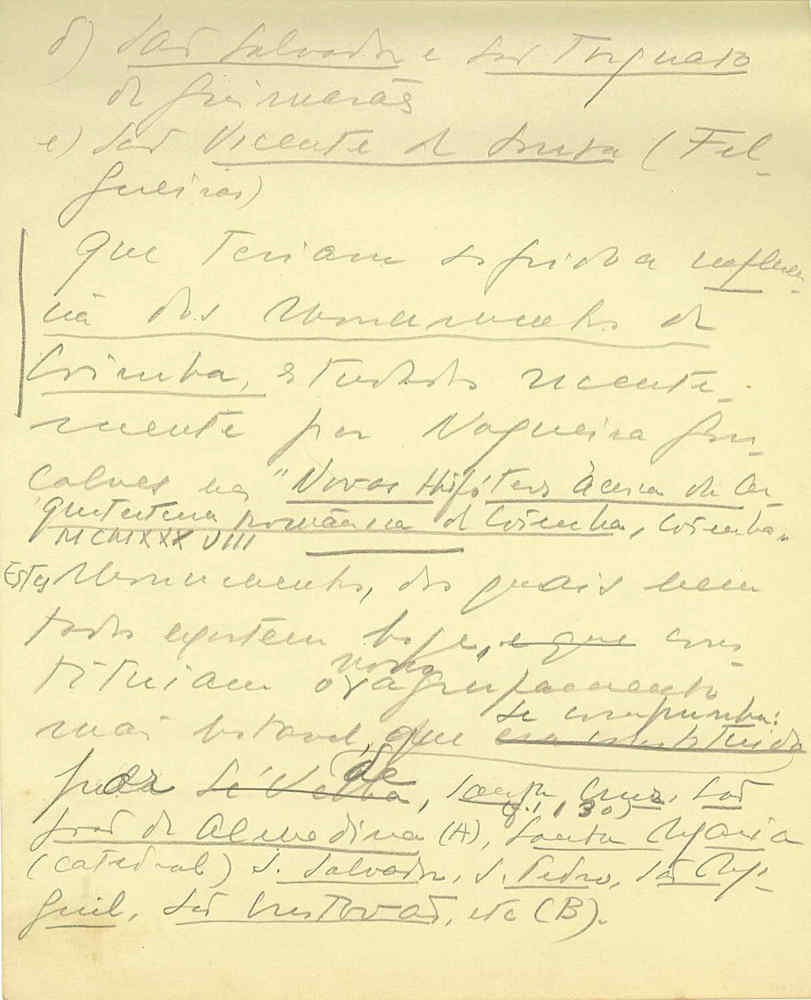 d) São Salvador e São Torquato
de Guimarães
e) São Vicente de Sousa (Fel-
gueiras)
que teriam sofrido a influen-
cia dos Monumentos de
Coimbra, estudados recente-
mente por Nogueira Gon-
çalves na "Novas Hipóteses àcerca da Ar-
quitectura românica de Coimbra, Coimbra"
MCMXXXVIII
Estes Monumentos, dos quais nem
todos existem hoje, e que cons-
tituiam o agrupamento
mais notavel, que era constituido
se compunha:
de Sé Velha, Santa Cruz, São
João de Almedina (A), Santa Maria
(catedral) S. Salvador, S. Pedro, São Mi-
guel, São Cristovão, etc (B).